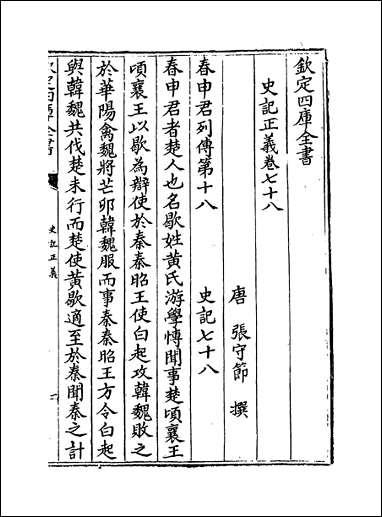 欽定四庫全書
史記正義卷七十八
唐 張守節 撰
春申君列傳第十八 史記七十八
春申君者楚人也名歇姓黄氏游學博聞事楚頃襄王
頃襄王以歇為辯使於秦秦昭王使白起攻韓魏敗之
於華陽禽魏將芒卯韓魏服而事秦秦昭王方令白起
與韓魏共伐楚未行而楚使黄歇適至於秦聞秦之計
欽定四庫全書
史記正義